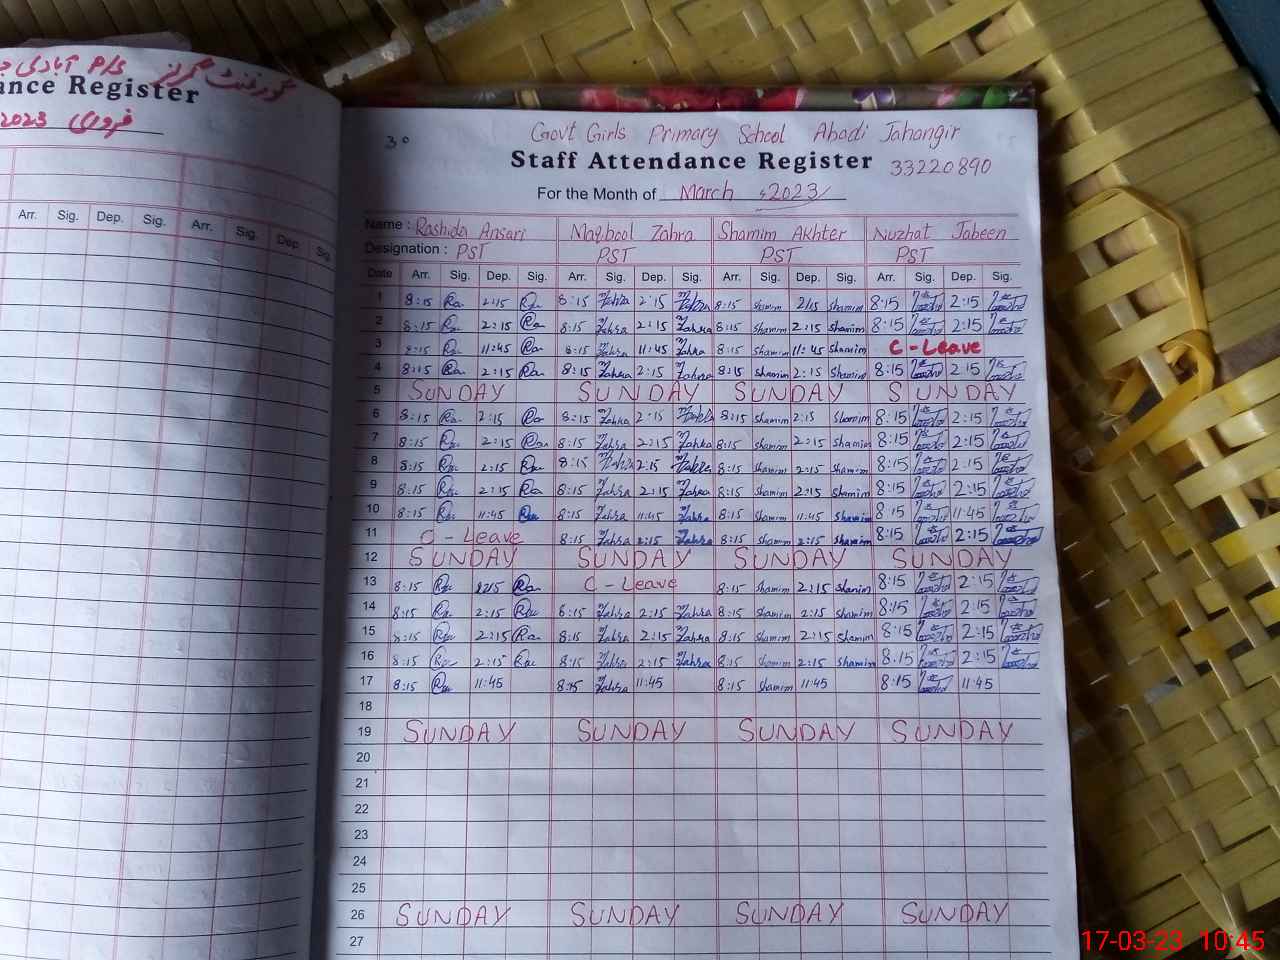 گورنمنٹ گرلز P/S آبادی
ance Register
فروری 2023
Arr. Sig. Dep. Sig. Arr. Sig. Dep. Sig.
30
Govt Girls Primary School Abadi Jahangir
Staff Attendance Register 33220890
For the Month of March 2023
Name : Rashida Ansari Maqbool Zahra Shamim Akhter Nuzhat Jabeen
Designation : PST PST PST PST
Date Arr. Sig. Dep. Sig. Arr. Sig. Dep. Sig. Arr. Sig. Dep. Sig. Arr. Sig. Dep. Sig.
1 8:15 Ra 2:15 Ra 8:15 Zahra 2:15 Zahra 8:15 shamim 2:15 shamim 8:15 2:15
2 8:15 Ra 2:15 Ra 8:15 Zahra 2:15 Zahra 8:15 shamim 2:15 shamim 8:15 2:15
3 8:15 Ra 11:45 Ra 8:15 Zahra 11:45 Zahra 8:15 shamim 11:45 shamim C-Leave
4 8:15 Ra 2:15 Ra 8:15 Zahra 2:15 Zahra 8:15 shamim 2:15 shamim 8:15 2:15
5 SUNDAY SUNDAY SUNDAY SUNDAY
6 8:15 Ra 2:15 Ra 8:15 Zahra 2:15 Zahra 8:15 shamim 2:15 shamim 8:15 2:15
7 8:15 Ra 2:15 Ra 8:15 Zahra 2:15 Zahra 8:15 shamim 2:15 shamim 8:15 2:15
8 8:15 Ra 2:15 Ra 8:15 Zahra 2:15 Zahra 8:15 shamim 2:15 shamim 8:15 2:15
9 8:15 Ra 2:15 Ra 8:15 Zahra 2:15 Zahra 8:15 shamim 2:15 shamim 8:15 2:15
10 8:15 Ra 11:45 Ra 8:15 Zahra 11:45 Zahra 8:15 shamim 11:45 shamim 8:15 11:45
11 C-Leave 8:15 Zahra 2:15 Zahra 8:15 shamim 2:15 shamim 8:15 2:15
12 SUNDAY SUNDAY SUNDAY SUNDAY
13 8:15 Ra 2:15 Ra C-Leave 8:15 shamim 2:15 shamim 8:15 2:15
14 8:15 Ra 2:15 Ra 8:15 Zahra 2:15 Zahra 8:15 shamim 2:15 shamim 8:15 2:15
15 8:15 Ra 2:15 Ra 8:15 Zahra 2:15 Zahra 8:15 shamim 2:15 shamim 8:15 2:15
16 8:15 Ra 2:15 Ra 8:15 Zahra 2:15 Zahra 8:15 shamim 2:15 shamim 8:15 2:15
17 8:15 Ra 11:45 8:15 Zahra 11:45 8:15 shamim 11:45 8:15 11:45
18
19 SUNDAY SUNDAY SUNDAY SUNDAY
20
21
22
23
24
25
26 SUNDAY SUNDAY SUNDAY SUNDAY
27
17-03-23 10:45